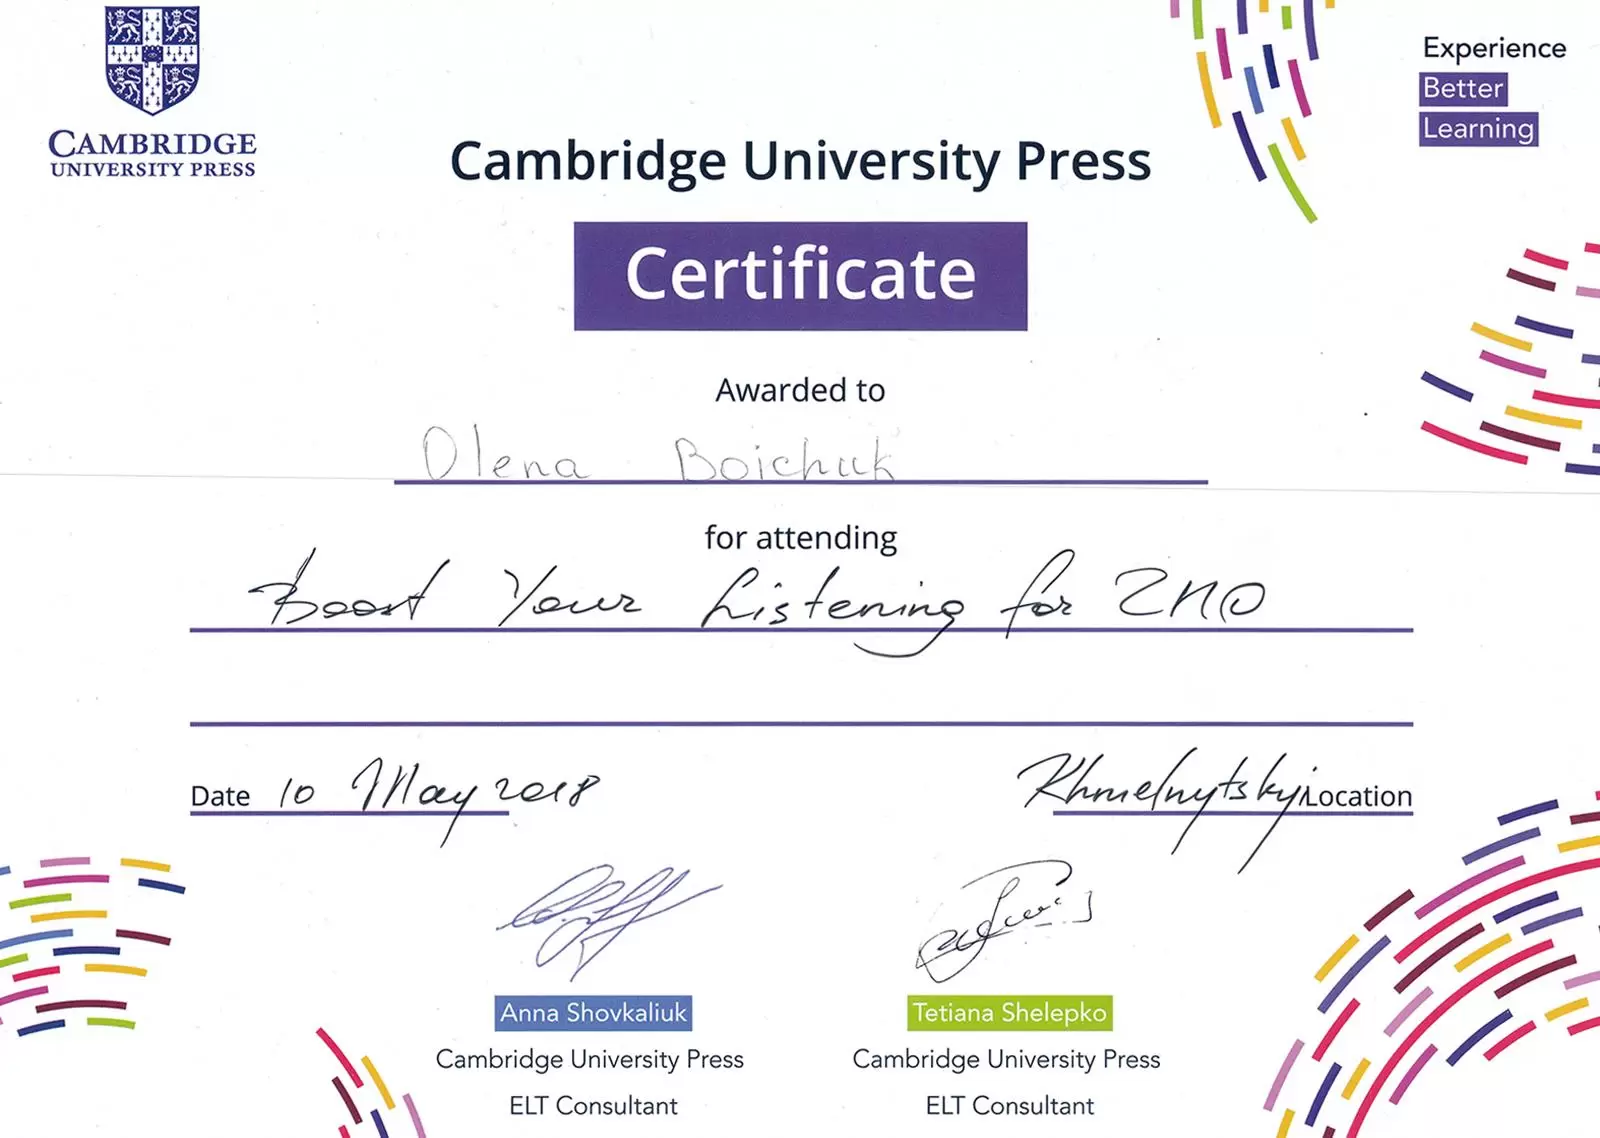 CAMBRIDGE
UNIVERSITY PRESS
Experience
Better
Learning
Cambridge University Press
Certificate
Awarded to
Olena Boichuk
for attending
Boost Your Listening for ZNO
Date 10 May 2018
Khmelnytskyi Location
Anna Shovkaliuk
Cambridge University Press
ELT Consultant
Tetiana Shelepko
Cambridge University Press
ELT Consultant